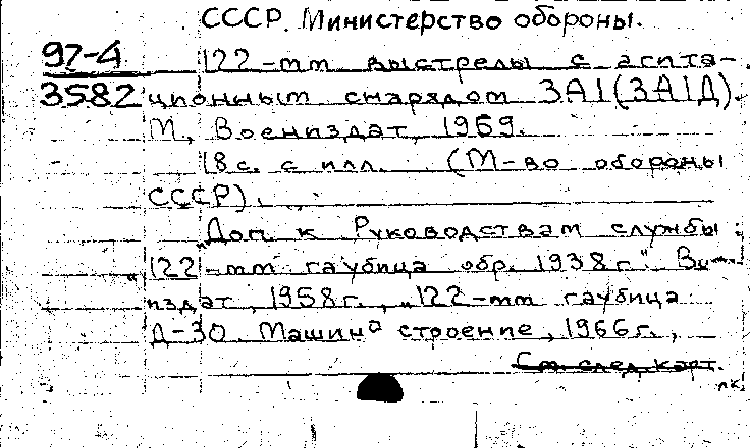 СССР. Министерство обороны.
97-4 122-мм выстрелы с агита-
3582 ционным снарядом 3А1(3А1Д).
М., Воениздат, 1969.
18 с. с илл. (М-во обороны
СССР).
„Доп. к Руководствам службы:
„122-мм гаубица обр. 1938 г." Во-
издат, 1958 г., „122-мм гаубица
Д-30. Машиностроение, 1966 г.,
См. след. карт.